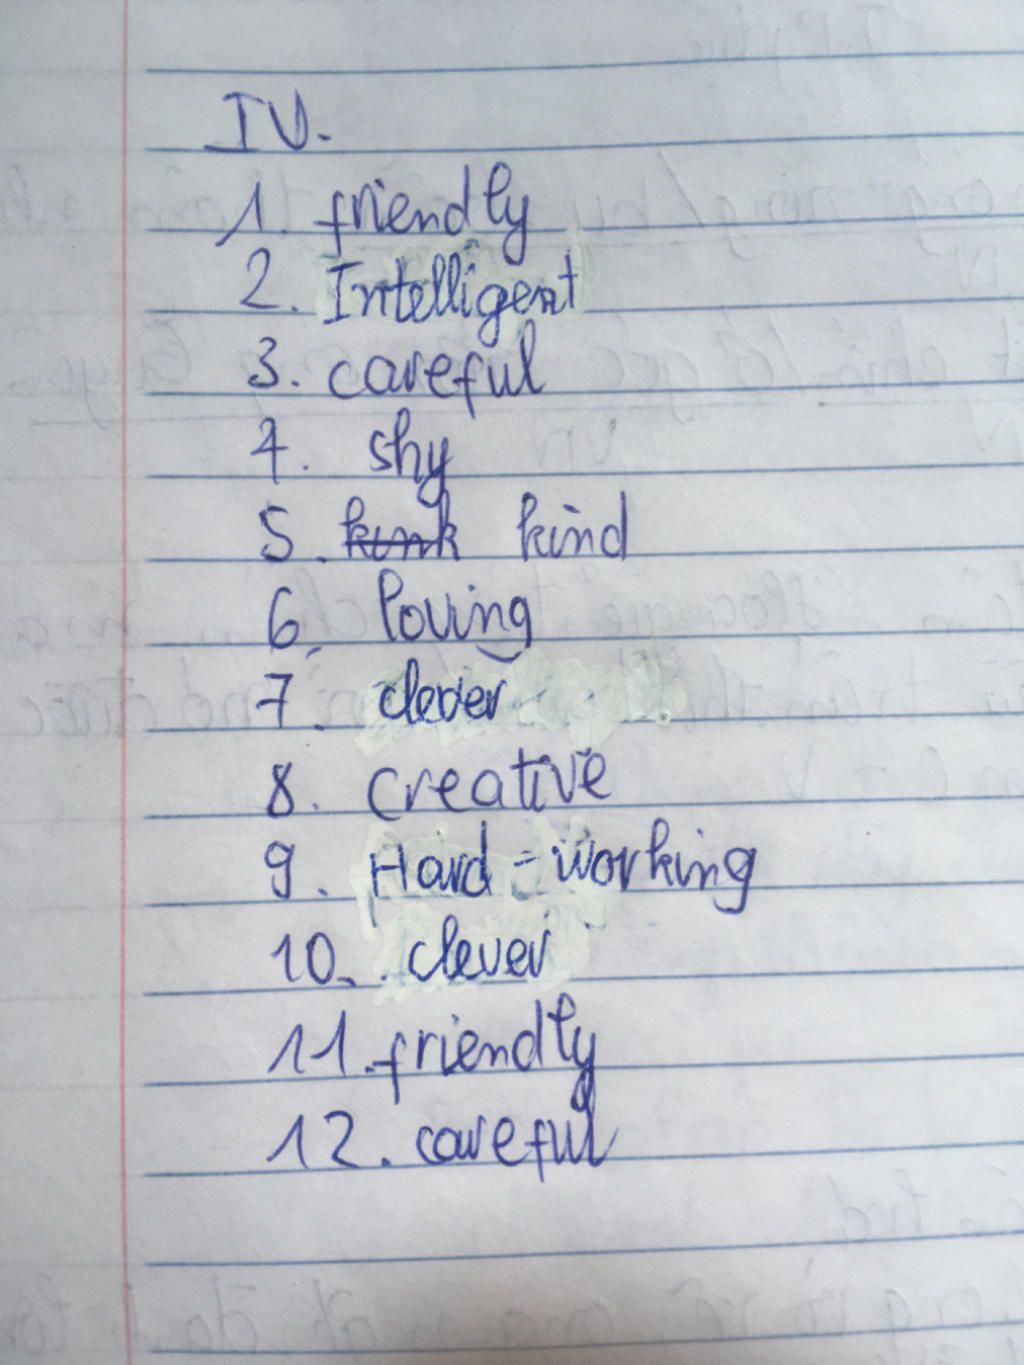 IV.
1. friendly
2. Intelligent
3. careful
4. shy
5. kind
6. loving
7. clever
8. creative
9. Hard-working
10. clever
11. friendly
12. careful